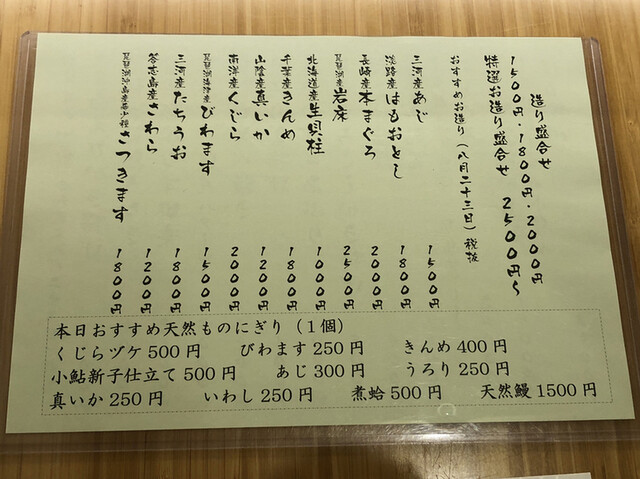 造り盛合せ
1500円・1800円・2000円
特選お造り盛合せ 2500円〜
おすすめお造り(八月二十三日)税抜
三河産あじ 1500円
淡路産はもおとし 1800円
長崎産本まぐろ 2000円
琵琶湖産岩床 2500円
北海道産生貝柱 1000円
千葉産きんめ 1800円
山陰産真いか 1200円
南洋産くじら 2000円
琵琶湖海津産びわます 1500円
三河産たちうお 1800円
答志島産さわら 1200円
琵琶湖沖島産希少種さつきます 1800円
本日おすすめ天然ものにぎり(1個)
くじらヅケ500円 びわます250円 きんめ400円
小鮎新子仕立て500円 あじ300円 うろり250円
真いか250円 いわし250円 煮蛤500円 天然鰻1500円